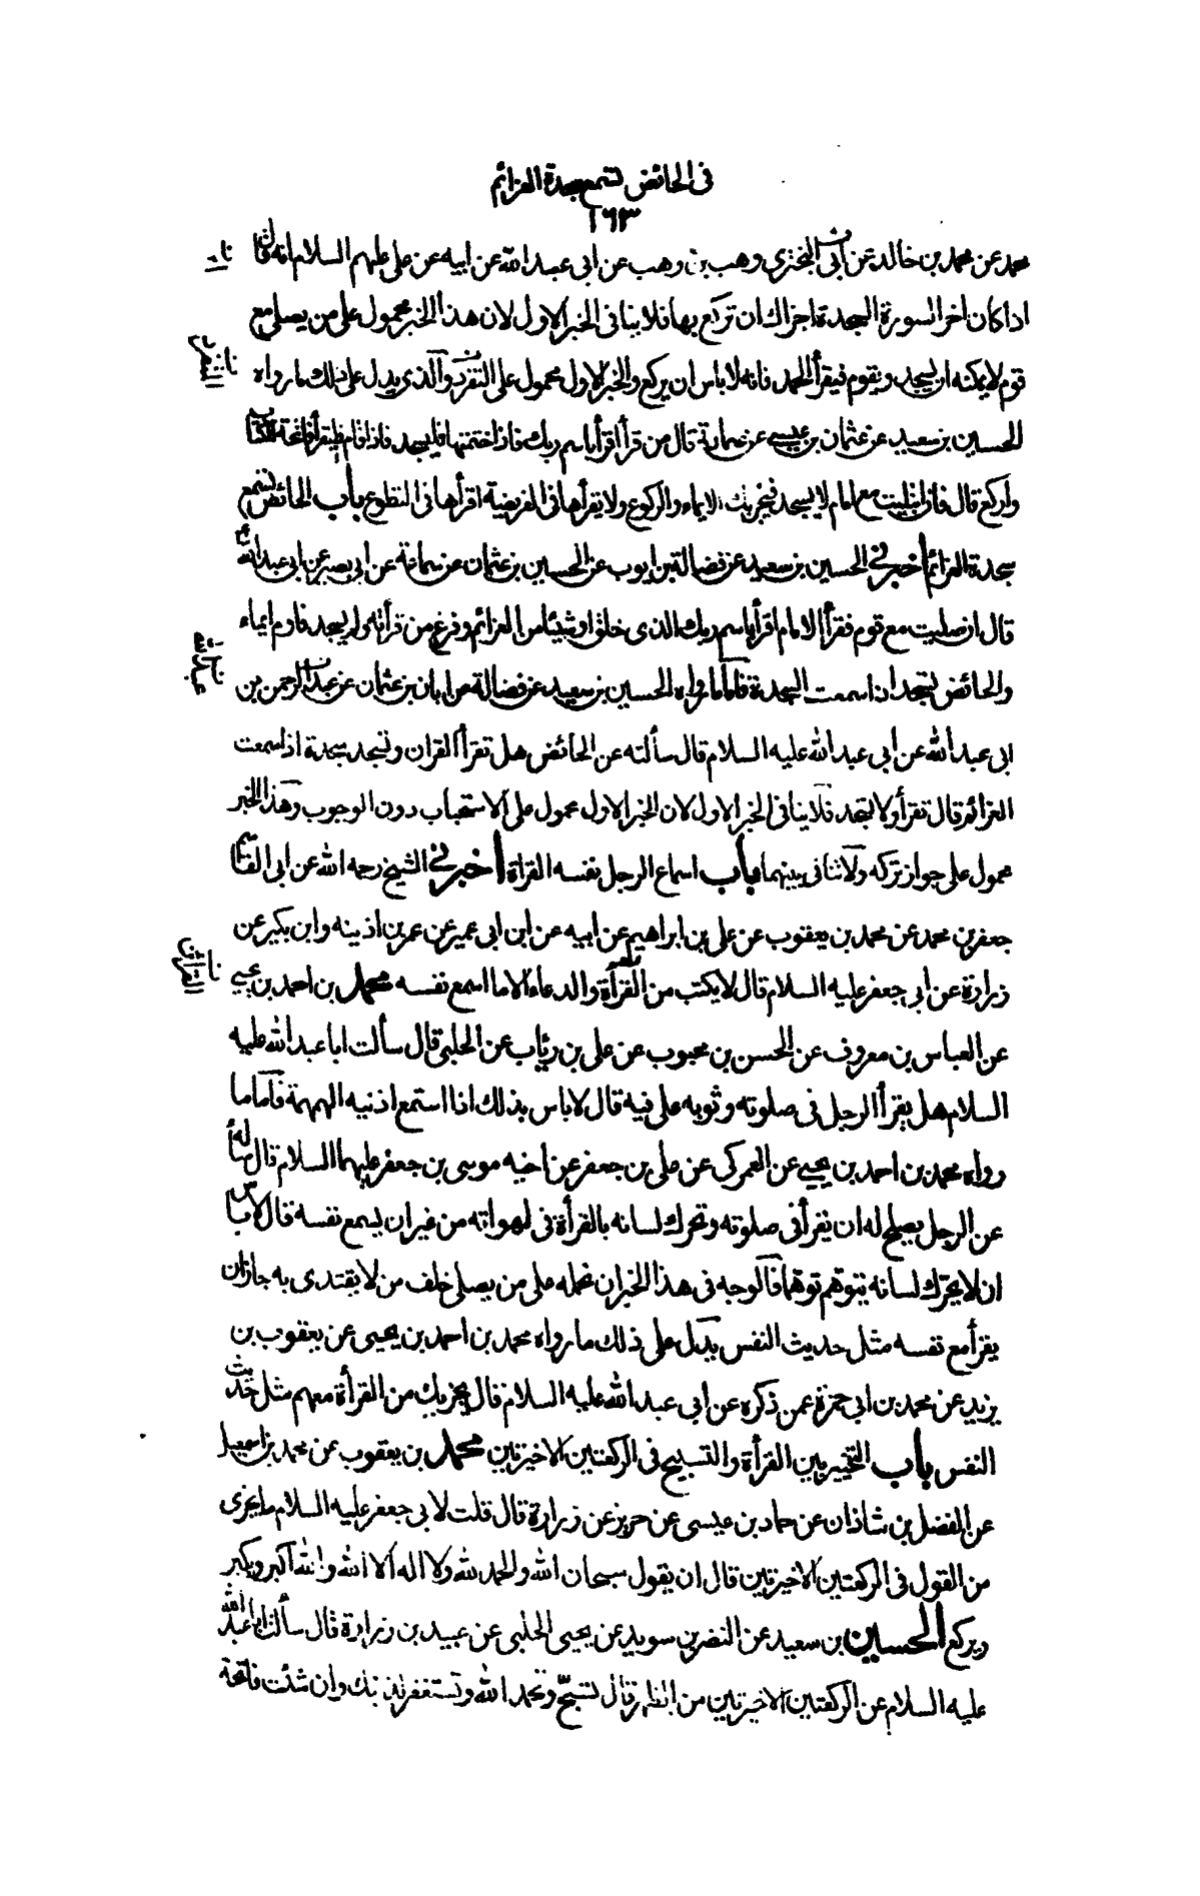 فى الحائض تسمع سجدة العزائم
١٦٣
محمد عن محمد بن خالد عن ابى البخترى وهب بن وهب عن ابى عبد الله عن ابيه عن على عليهم السلام انه قال
اذا كان اخر السورة السجدة اجزاك ان تركع بها فلا ينافى الخبر الاول لان هذا الخبر محمول على من يصلى مع
قوم لا يمكنه ان يسجد ويقوم فيقرأ الحمد فانه لا باس ان يركع والخبر الاول محمول على التفرد والذى يدل على ذلك ما رواه
الحسين بن سعيد عن عثمان بن عيسى عن سماعة قال من قرأ اقرأ باسم ربك فاذا ختمتها فليسجد فاذا قام فليقرأ فاتحة الكتاب
وليركع قال فاذا ابتليت مع امام لا يسجد فيجزيك الايماء والركوع ولا يقرأها فى الفريضة اقرأها فى التطوع باب الحائض تسمع
سجدة العزائم اخبرنى الحسين بن سعيد عن فضالة بن ايوب عن الحسين بن عثمان عن سماعة عن ابى بصير عن ابى عبد الله
قال ان صليت مع قوم فقرأ الامام اقرأ باسم ربك الذى خلق او شيئا من العزائم وفرغ من قرأته ولم يسجد فاوم ايماء
والحائض تسجد اذا سمعت السجدة فاما ما رواه الحسين بن سعيد عن فضالة عن ابان بن عثمان عن عبد الرحمن بن
ابى عبد الله عن ابى عبد الله عليه السلام قال سألته عن الحائض هل تقرأ القران وتسجد سجدة اذا سمعت
العزائم قال تقرأ ولا تسجد فلا ينافى الخبر الاول لان الخبر الاول محمول على الاستحباب دون الوجوب وهذا الخبر
محمول على جواز تركه ولا تنافى بينهما باب اسماع الرجل نفسه القراة اخبرنى الشيخ رحمه الله عن ابى القاسم
جعفر بن محمد عن محمد بن يعقوب عن على بن ابراهيم عن ابيه عن ابن ابى عمير عن عمر بن اذينه وابن بكير عن
زرارة عن ابى جعفر عليه السلام قال لا يكتب من القرأة والدعاء الا ما اسمع نفسه محمد بن احمد بن يحيى
عن العباس بن معروف عن الحسن بن محبوب عن على بن رئاب عن الحلبى قال سألت ابا عبد الله عليه
السلام هل يقرأ الرجل فى صلوته وثوبه على فيه قال لا باس بذلك اذا استمع اذنيه الهمهمة فاما ما
رواه محمد بن احمد بن يحيى عن العمركى عن على بن جعفر عن اخيه موسى بن جعفر عليهما السلام قال سألته
عن الرجل يصلح له ان يقرأ فى صلوته وتحرك لسانه بالقرأة فى لهواته من غير ان يسمع نفسه قال لا باس
ان لا يحرك لسانه يتوهم توهما فالوجه فى هذا الخبر ان نحمله على من يصلى خلف من لا يقتدى به جاز ان
يقرأ مع نفسه مثل حديث النفس يدل على ذلك ما رواه محمد بن احمد بن يحيى عن يعقوب بن
يزيد عن محمد بن ابى حمزة عمن ذكره عن ابى عبد الله عليه السلام قال يجزيك من القرأة معهم مثل حديث
النفس باب التخيير بين القرأة والتسبيح فى الركعتين الاخيرتين محمد بن يعقوب عن محمد بن اسمعيل
عن الفضل بن شاذان عن حماد بن عيسى عن حريز عن زرارة قال قلت لابى جعفر عليه السلام ما يجزى
من القول فى الركعتين الاخيرتين قال ان يقول سبحان الله والحمد لله ولا اله الا الله والله اكبر ويكبر
ويركع الحسين بن سعيد عن النضر بن سويد عن يحيى الحلبى عن عبيد بن زرارة قال سألت ابا عبد الله
عليه السلام عن الركعتين الاخيرتين من الظهر قال تسبح وتحمد الله وتستغفر لذنبك وان شئت فاتحة